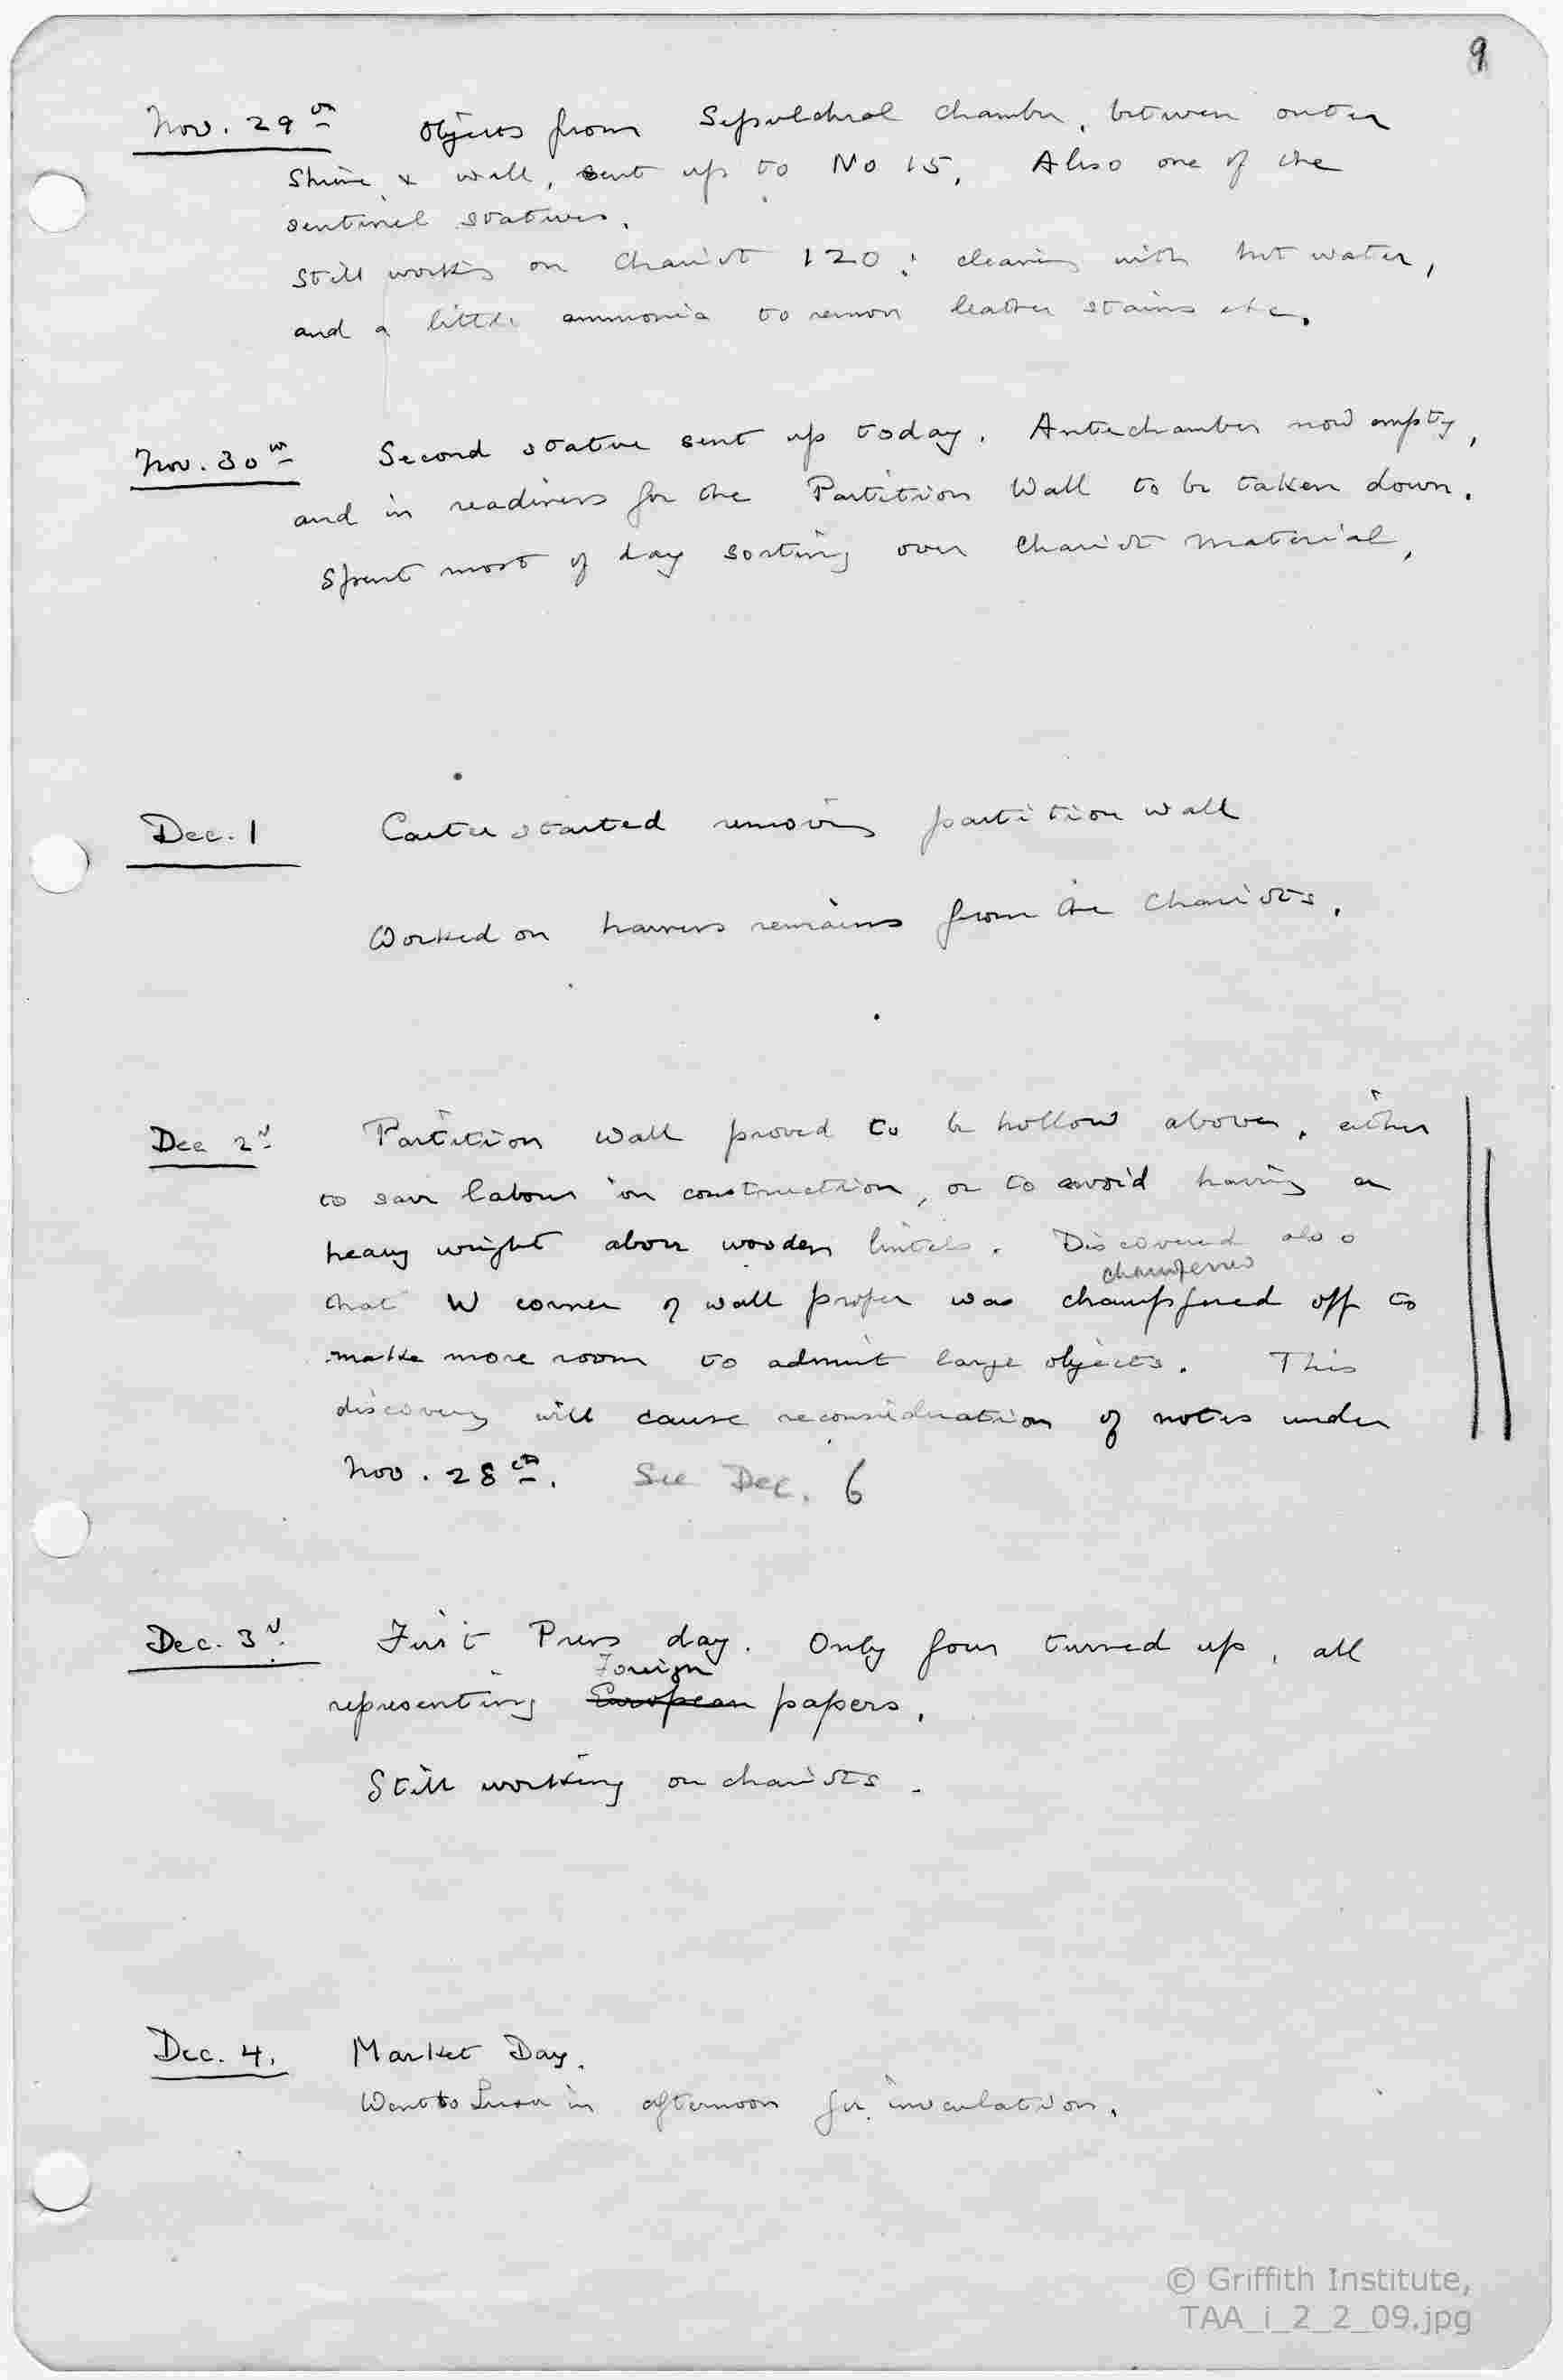 9
Nov. 29th Objects from Sepulchral Chamber, between outer
shrine & wall, sent up to No 15. Also one of the
sentinel statues.
Still working on Chariot 120: cleaning with hot water,
and a little ammonia to remove leather stains etc.
Nov. 30th Second statue sent up today. Antechamber now empty,
and in readiness for the Partition Wall to be taken down.
Spent most of day sorting over chariot material.
Dec. 1 Carter started removing partition wall
Worked on harness remains from the chariots.
Dec 2d Partition wall proved to be hollow above, either
to save labour in construction, or to avoid having a
heavy weight above wooden lintels. Discovered also
chamferred
that W corner of wall proper was champfered off to
make more room to admit large objects. This
discovery will cause reconsideration of notes under
Nov. 28th. See Dec. 6
Dec. 3d. First Press day. Only four turned up, all
Foreign
representing European papers.
Still working on chariots.
Dec. 4. Market Day.
Went to Luxor in afternoon for inoculation.
© Griffith Institute,
TAA_i_2_2_09.jpg